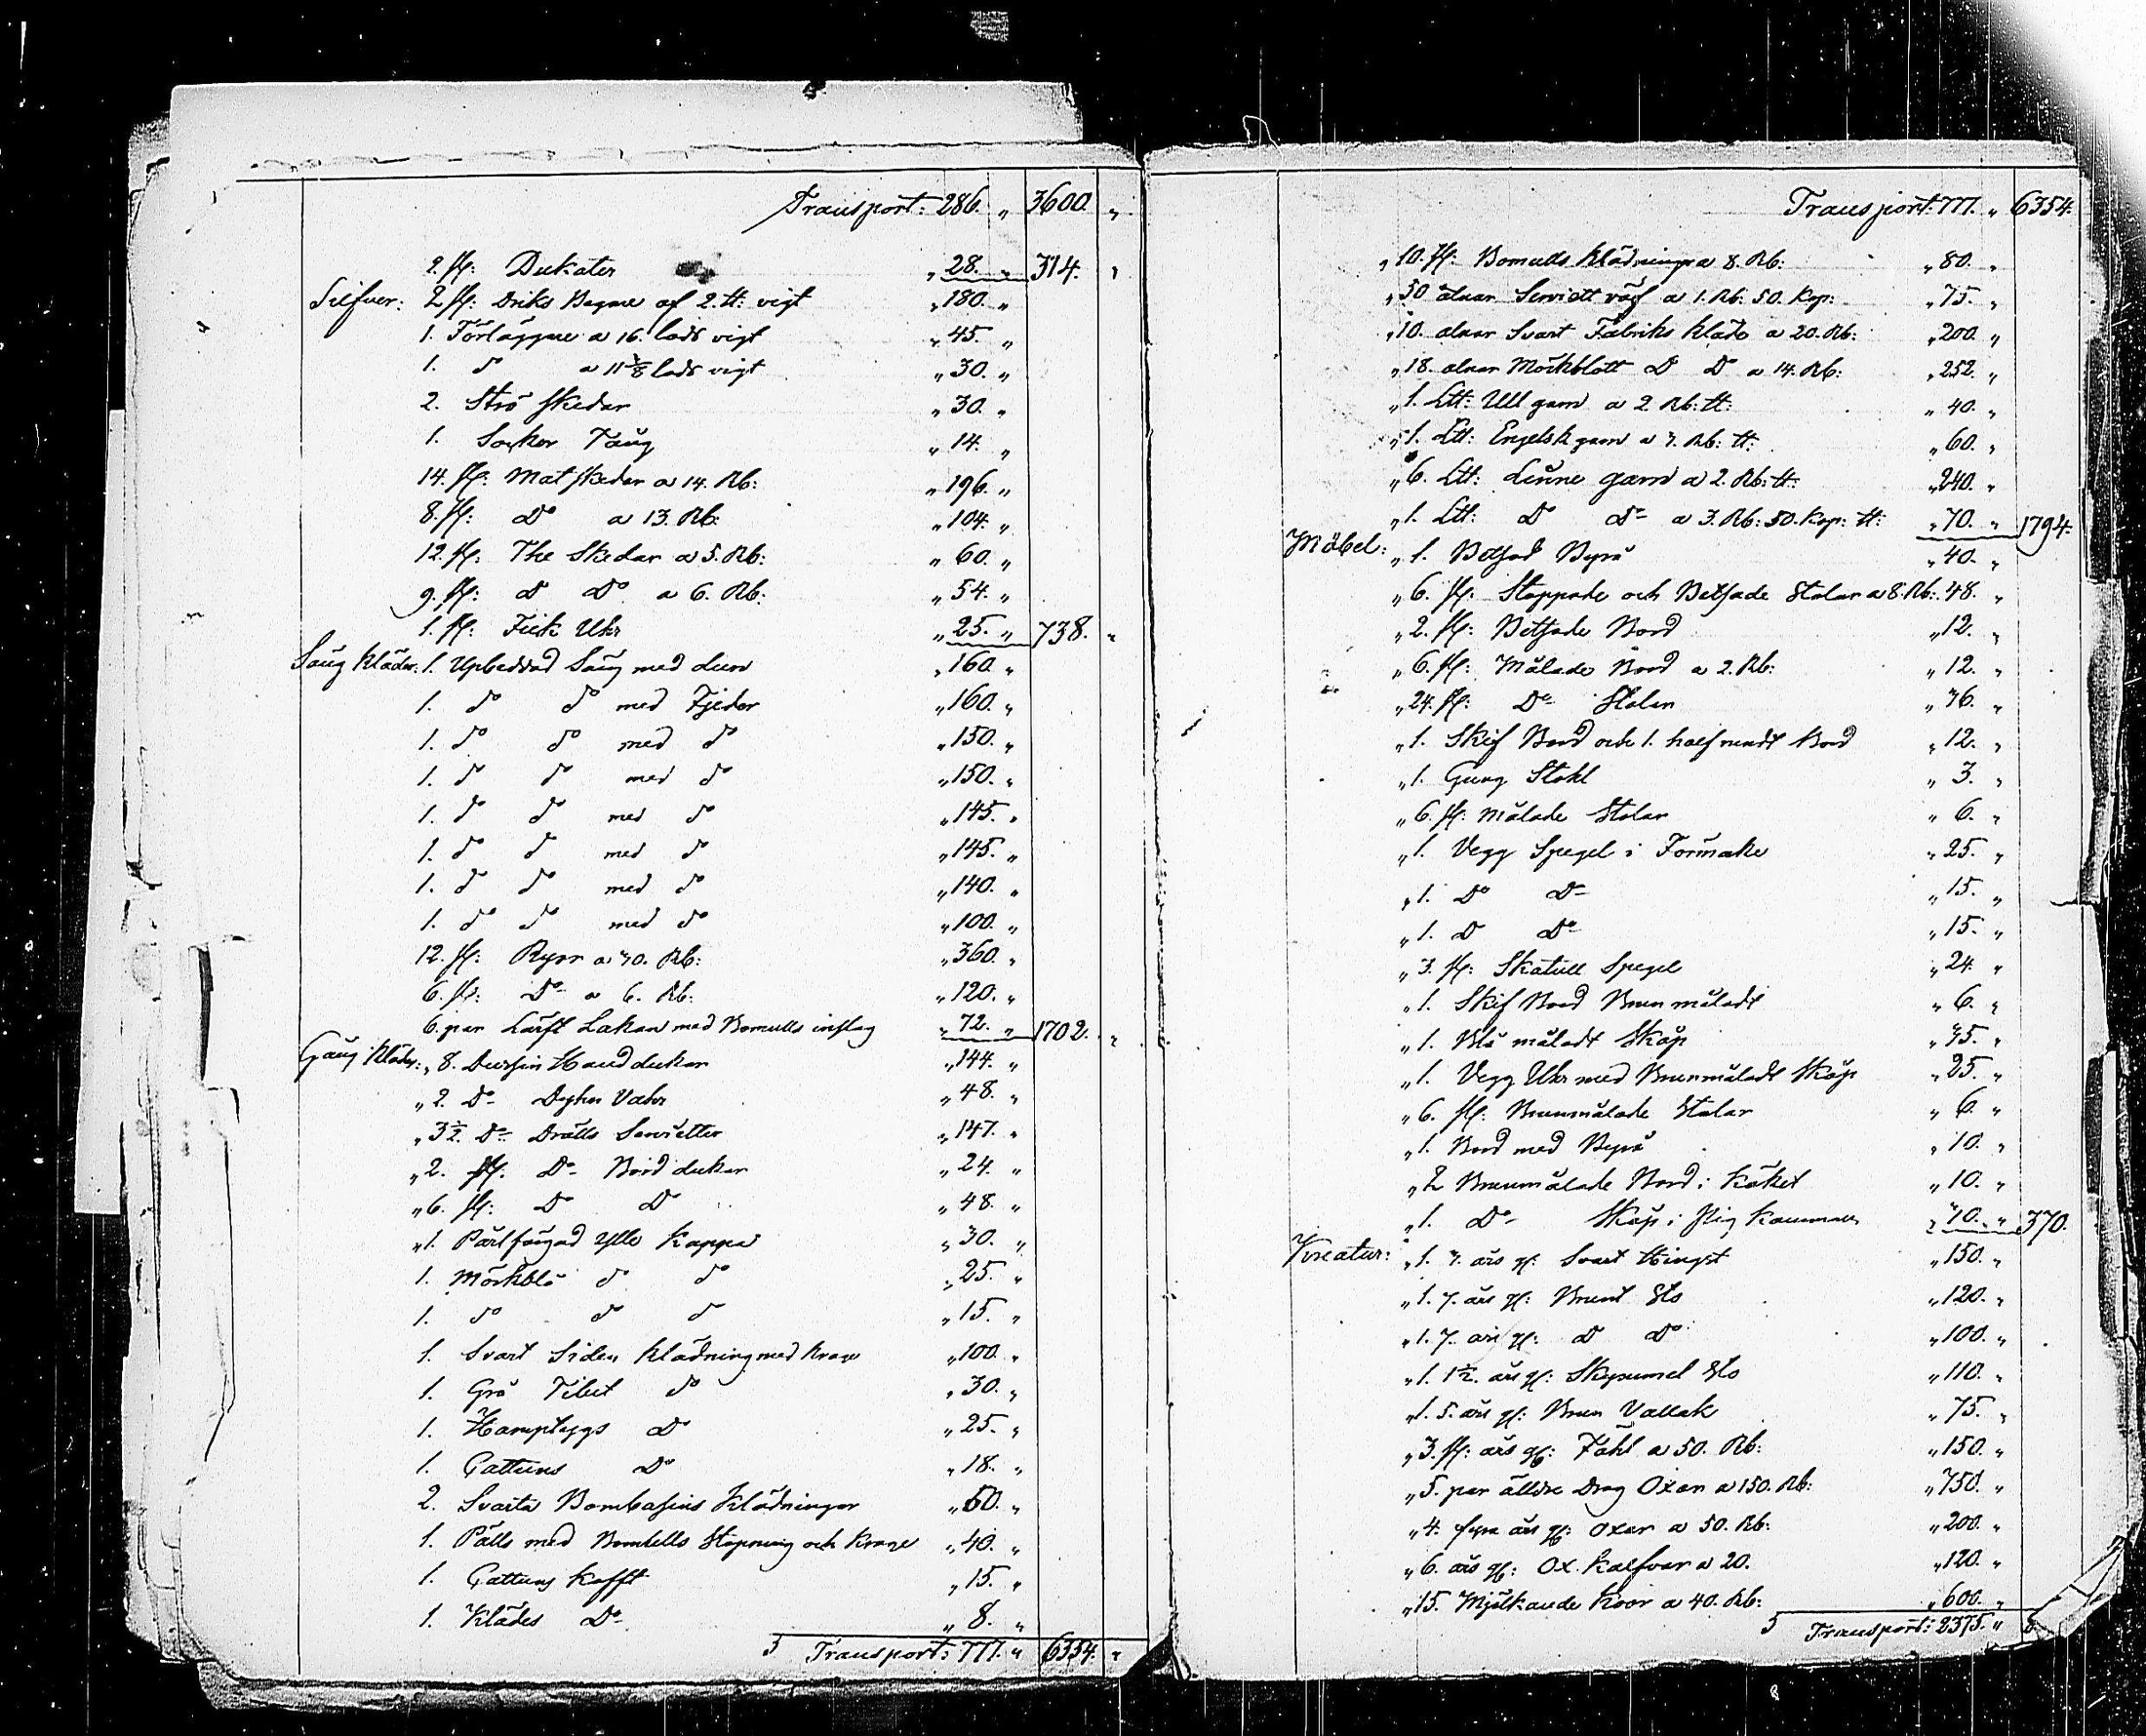 Transport: 286. „ 3600. „
2. st: Dukater „ 28. „ 314. „
Silfver: 2 st: Driks Bagare af 2. tt: vigt „ 180. „
1. Förläggare a 16. lods vigt „ 45. „
1. do a 11 1/8 lods vigt „ 30. „
2. Strö skedar „ 30. „
1. Socker Tång „ 14. „
14. st: Mat skedar a 14. Rb: „ 196. „
8. st: Do a 13. Rb: „ 104. „
12. st: The Skedar a 5. Rb: „ 60. „
9. st: d Do a 6. Rb: „ 54. „
1. st: Fick Uhr „ 25. „ 738. „
Säng Kläder: 1. Upbäddad Säng med dun „ 160. „
1. do do med Fjeder „ 160. „
1. do do med do „ 150. „
1. do do med do „ 150. „
1. do do med do „ 145. „
1. do do med do „ 145. „
1. do do med do „ 140. „
1. do do med do „ 100. „
12. st: Ryor a 30. Rb: „ 360. „
6. st: Do a 6. Rb: „ 120. „
6. par Lärft Lakan med Bomulls inslag „ 72. „ 1702. „
Gång Kläder: „ 8. Dussin Handdukar „ 144. „
„ 2. Do Vahr „ 48. „
„ 3 1/2. Do Drälls Servietter „ 147. „
„ 2. st. Do Bord dukar „ 24. „
„ 6. st: D D „ 48. „
„ 1. Pärlfärgad Ylle Kappa „ 30. „
1. Mörkblå d do „ 25. „
1. do do d „ 15. „
1. Svart Siden Klädning med Krage „ 100. „
1. Grå Tibet do „ 30. „
1. Hamptygs Do „ 25. „
1. Cattuns Do „ 18. „
2. Svarta Bombasins Klädningar „ 50. „
1. Pälls med Bomulls Stopning och Krage „ 40. „
1. Cattuns Kofft „ 15. „
1. Klädes Do „ 8. „
Transport: 777. „ 6354. „
Transport: 777. „ 6354.
„ 10. st: Bomulls Klädningar a 8. Rb: „ 80. „
„ 30 alnar Serviett väf a 1. Rb: 50. Kop: „ 75. „
„ 10. alnar Svart Fabriks Kläde a 20. Rb: „ 200. „
„ 18. alnar Mörkblått D D a 14. Rb: „ 252. „
„ 1. Ltt: Ull garn a 2 Rb: tt: „ 40. „
„ 1. Ltt: Engelsk garn a 3. Rb: tt: „ 60. „
„ 6. Ltt: Linne garn a 2. Rb: tt: „ 240. „
„ 1. Ltt: D Do a 3. Rb: 50. Kop: tt: „ 70. „ 1794.
Möbel: „ 1. Betsad Byrå „ 40. „
„ 6. st: Stoppade och Betsade Stolar a 8. Rb: „ 48. „
„ 2. st: Betsade Bord „ 12. „
„ 6. st: Målade Bord a 2. Rb: „ 12. „
„ 24. st: Do Stolar „ 36. „
„ 1. Skif Bord och 1. half rundt Bord „ 12. „
„ 1. Gung Stohl „ 3. „
„ 6. st: målade Stolar „ 6. „
„ 1. Vegg Spegel i Förmake „ 25. „
„ 1. Do Do „ 15. „
„ 1. D Do „ 15. „
„ 3. st: Skatull Spegel „ 24. „
„ 1. Skif Bord Brun måladt „ 6. „
„ 1. Blå måladt Skåp „ 35. „
„ 1. Vegg Uhr med Brunmåladt Skåp „ 25. „
„ 6. st: Brunmålade Stolar „ 6. „
„ 1. Bord med Byrå „ 10. „
„ 2 Brunmålade Bord i Köket „ 10. „
„ 1. Do Skåp i Kammarn „ 10. „ 370.
Kreatur: „ 1. 3. års gl: Svart Hingst „ 150. „
„ 1. 7. års gl: Brunt Sto „ 120. „
„ 1. 7. års gl: D Do „ 100. „
„ 1. 1 1/2. års gl: Sto „ 110. „
„ 1. 5. års gl: Brun Vallak „ 75. „
„ 3. st: års gl: Fåhl a 50. Rb: „ 150. „
„ 5. par äldre Drag Oxar a 150. Rb: „ 750. „
„ 4. fyra års gl: Oxar a 50. Rb: „ 200. „
„ 6. års gl: Ox. Kalfvar a 20. „ 120. „
„ 15. Mjölkande Koor a 40. Rb: „ 600. „
Transport: 2375. „